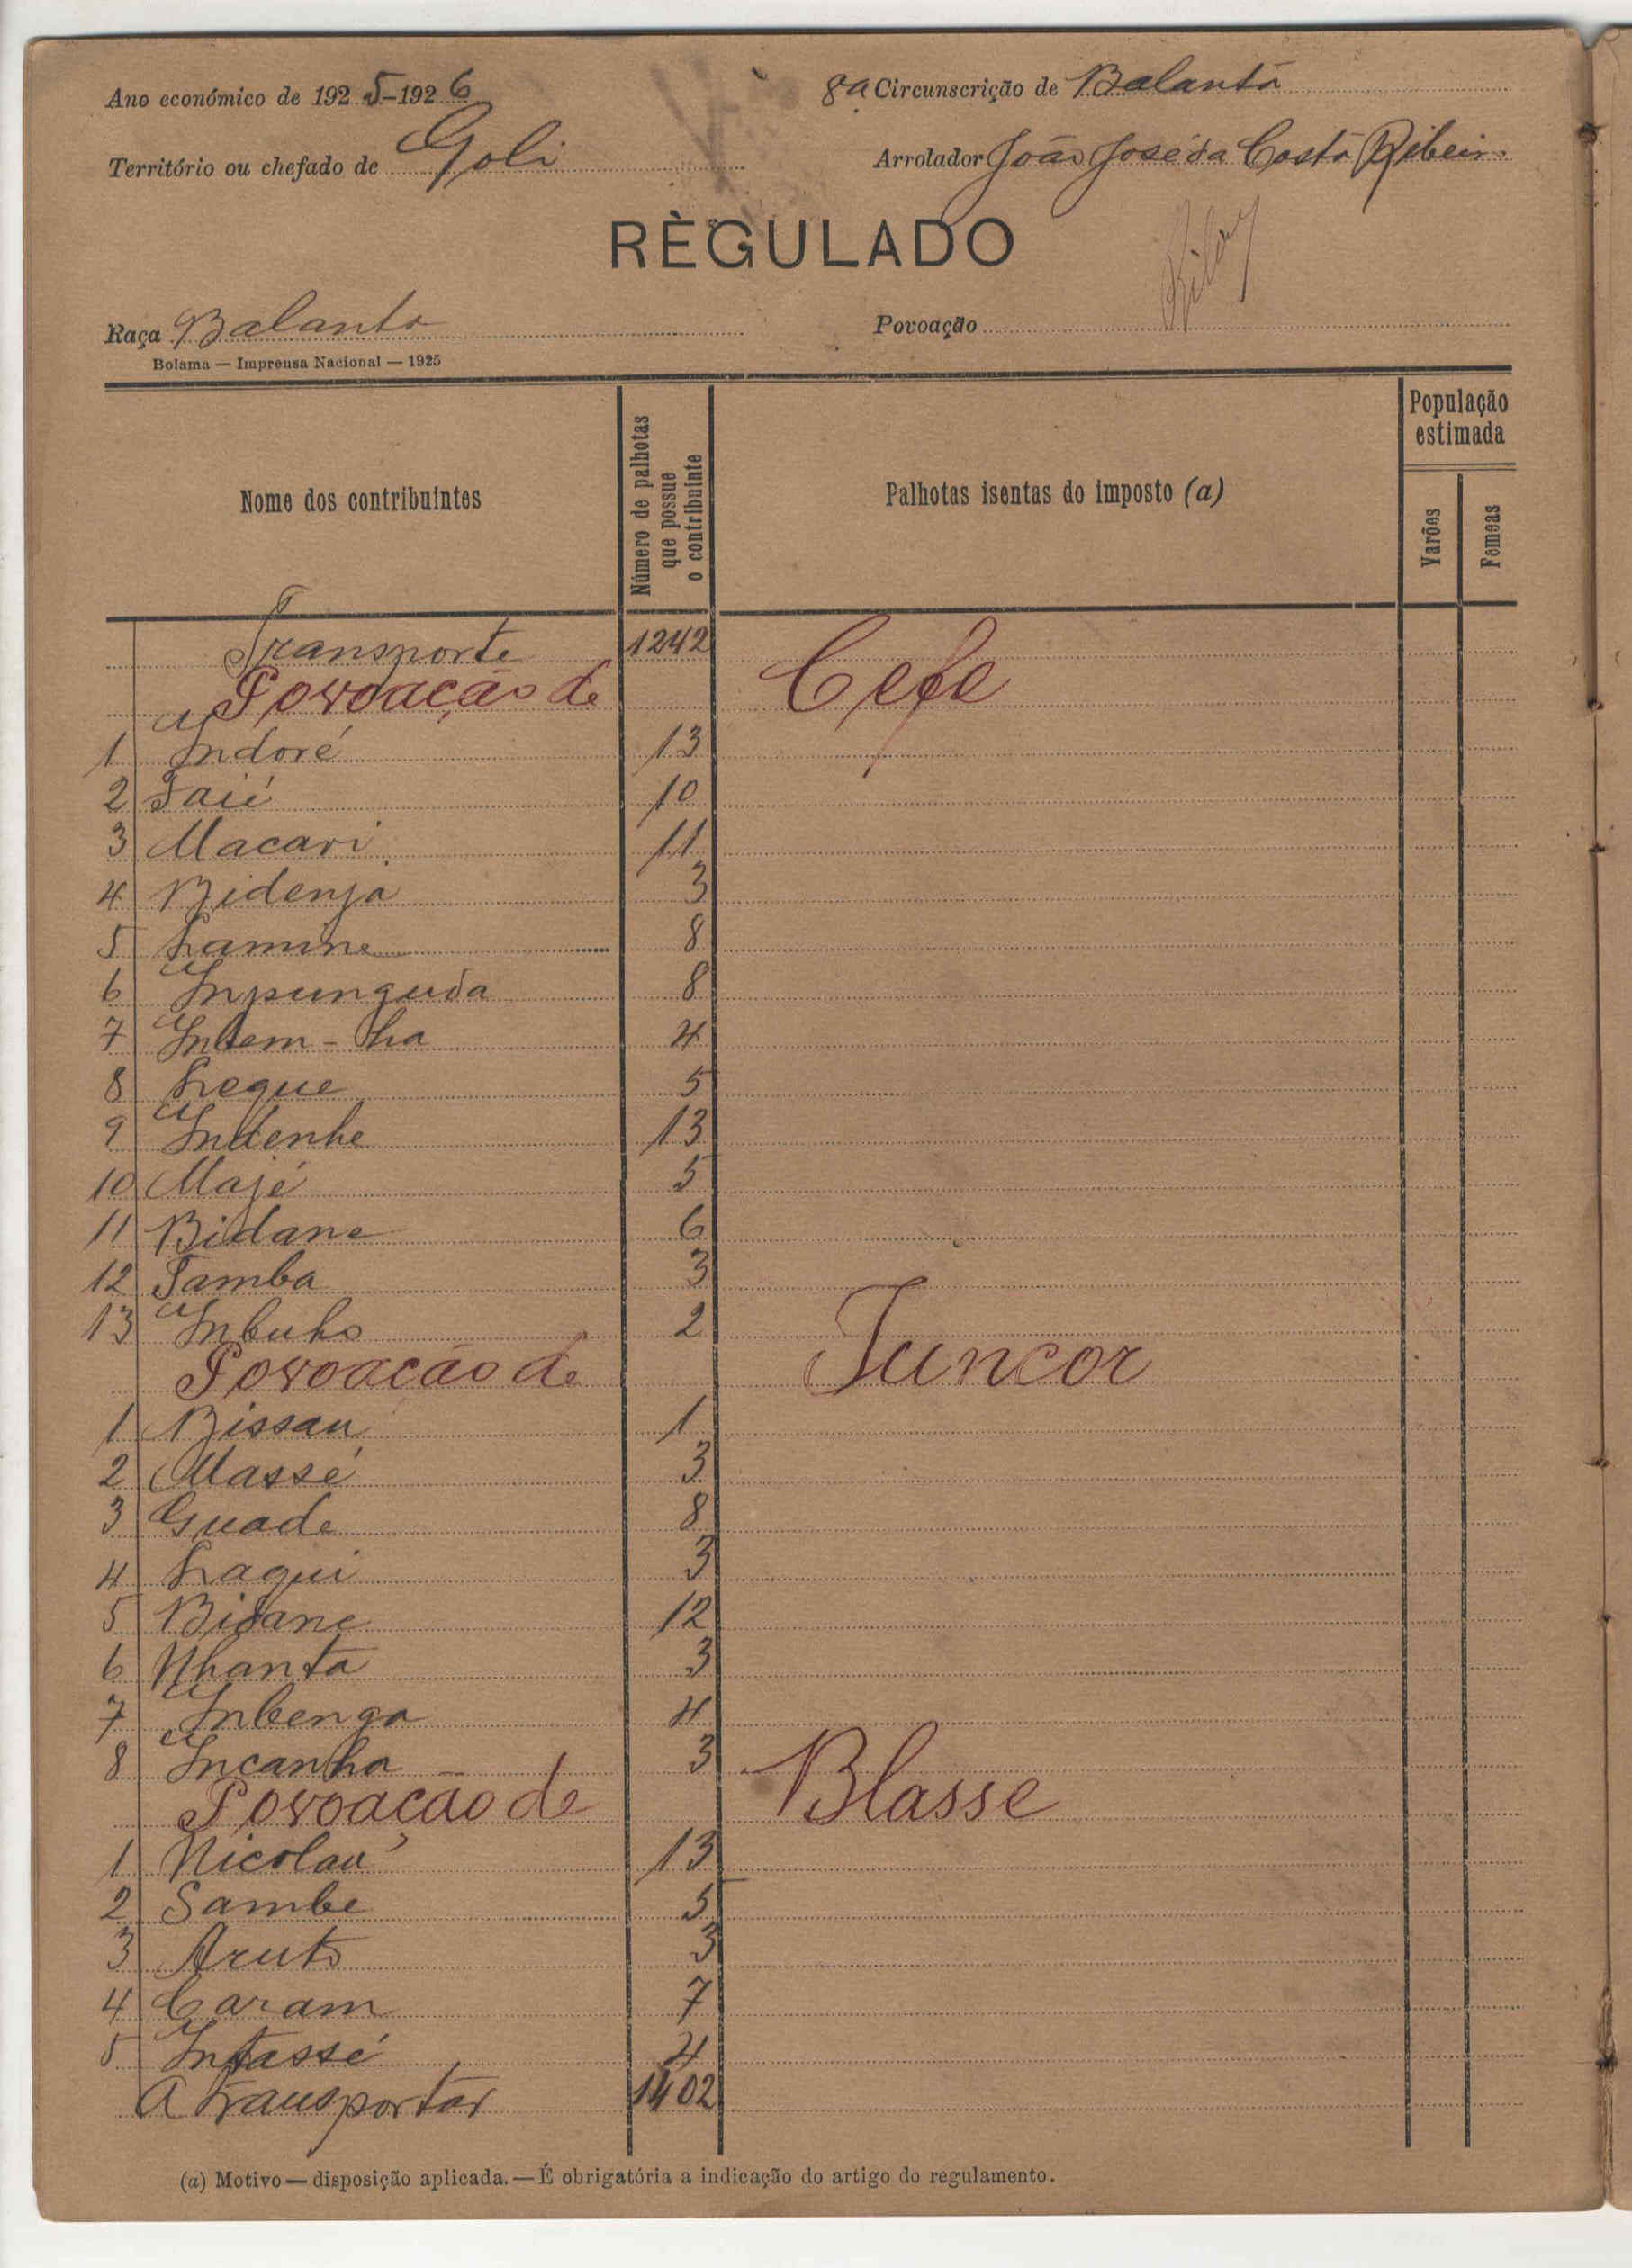 Ano económico de 1925-1926
8a Circunscrição de Balanta
Território ou chefado de Goli
Arrolador João José da Costa Ribeiro
RÈGULADO
Raça Balanta
Povoação
Bolama — Imprensa Nacional — 1925
Nome dos contribuintes
Número de palhotas que possue o contribuinte
Palhotas isentas do imposto (a)
População estimada
Varões
Femeas
Transporte 1242
Povoação de Cefe
1 Indoré 13
2 Taié 10
3 Macari 11
4 Bidenja 3
5 Lamine 8
6 Inpunguda 8
7 Intem-ha 4
8 Leque 5
9 Indenhe 13
10 Majé 5
11 Bidane 6
12 Tamba 3
13 Inbuho 2
Povoação de Tuncor
1 Bissau 1
2 Massé 3
3 Guade 8
4 Laqui 3
5 Bidane 12
6 Nhanta 3
7 Inbenga 4
8 Incanha 3
Povoação de Blasse
1 Nicolau 13
2 Sambe 5
3 Aruto 3
4 Caram 7
5 Intassé 4
A transportar 1402
(a) Motivo — disposição aplicada. — É obrigatória a indicação do artigo do regulamento.